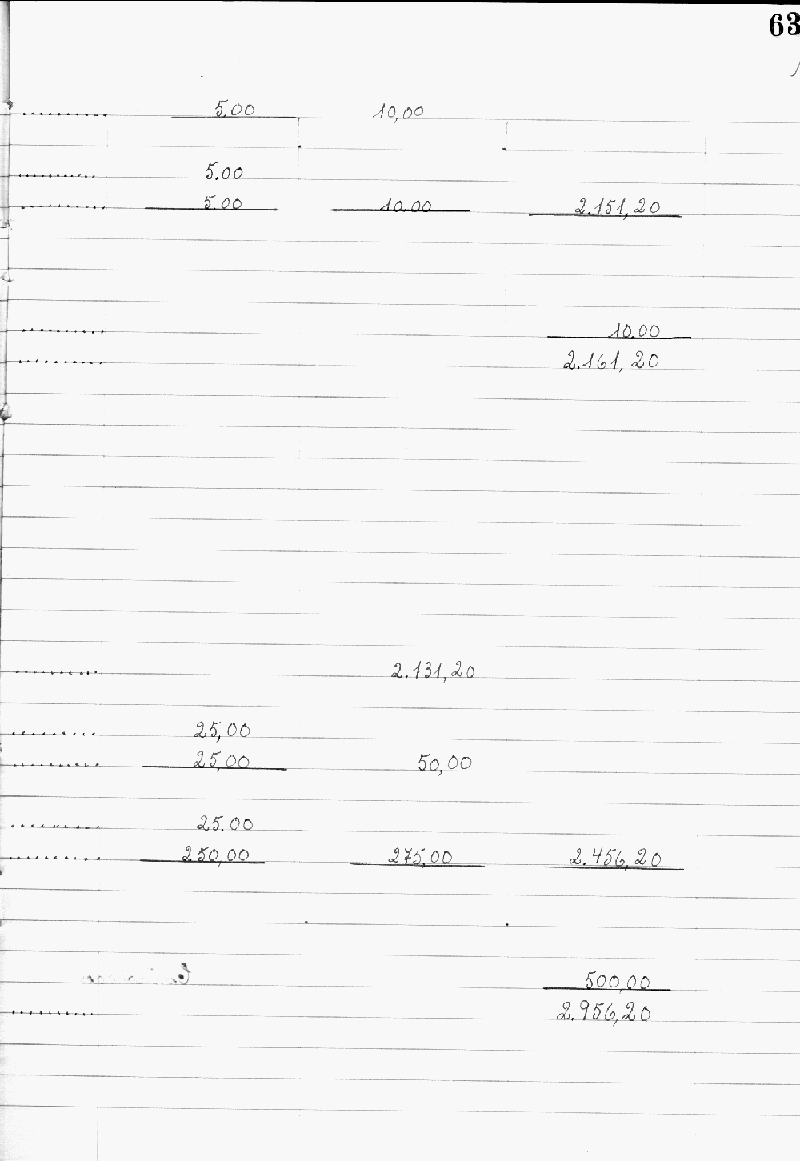 63
.......... 5.00 10,00
.......... 5.00
.......... 5.00 10.00 2.151,20
.......... 10.00
.......... 2.161,20
.......... 2.131,20
.......... 25,00
.......... 25,00 50,00
.......... 25.00
.......... 250,00 275,00 2.456,20
500,00
.......... 2.956,20